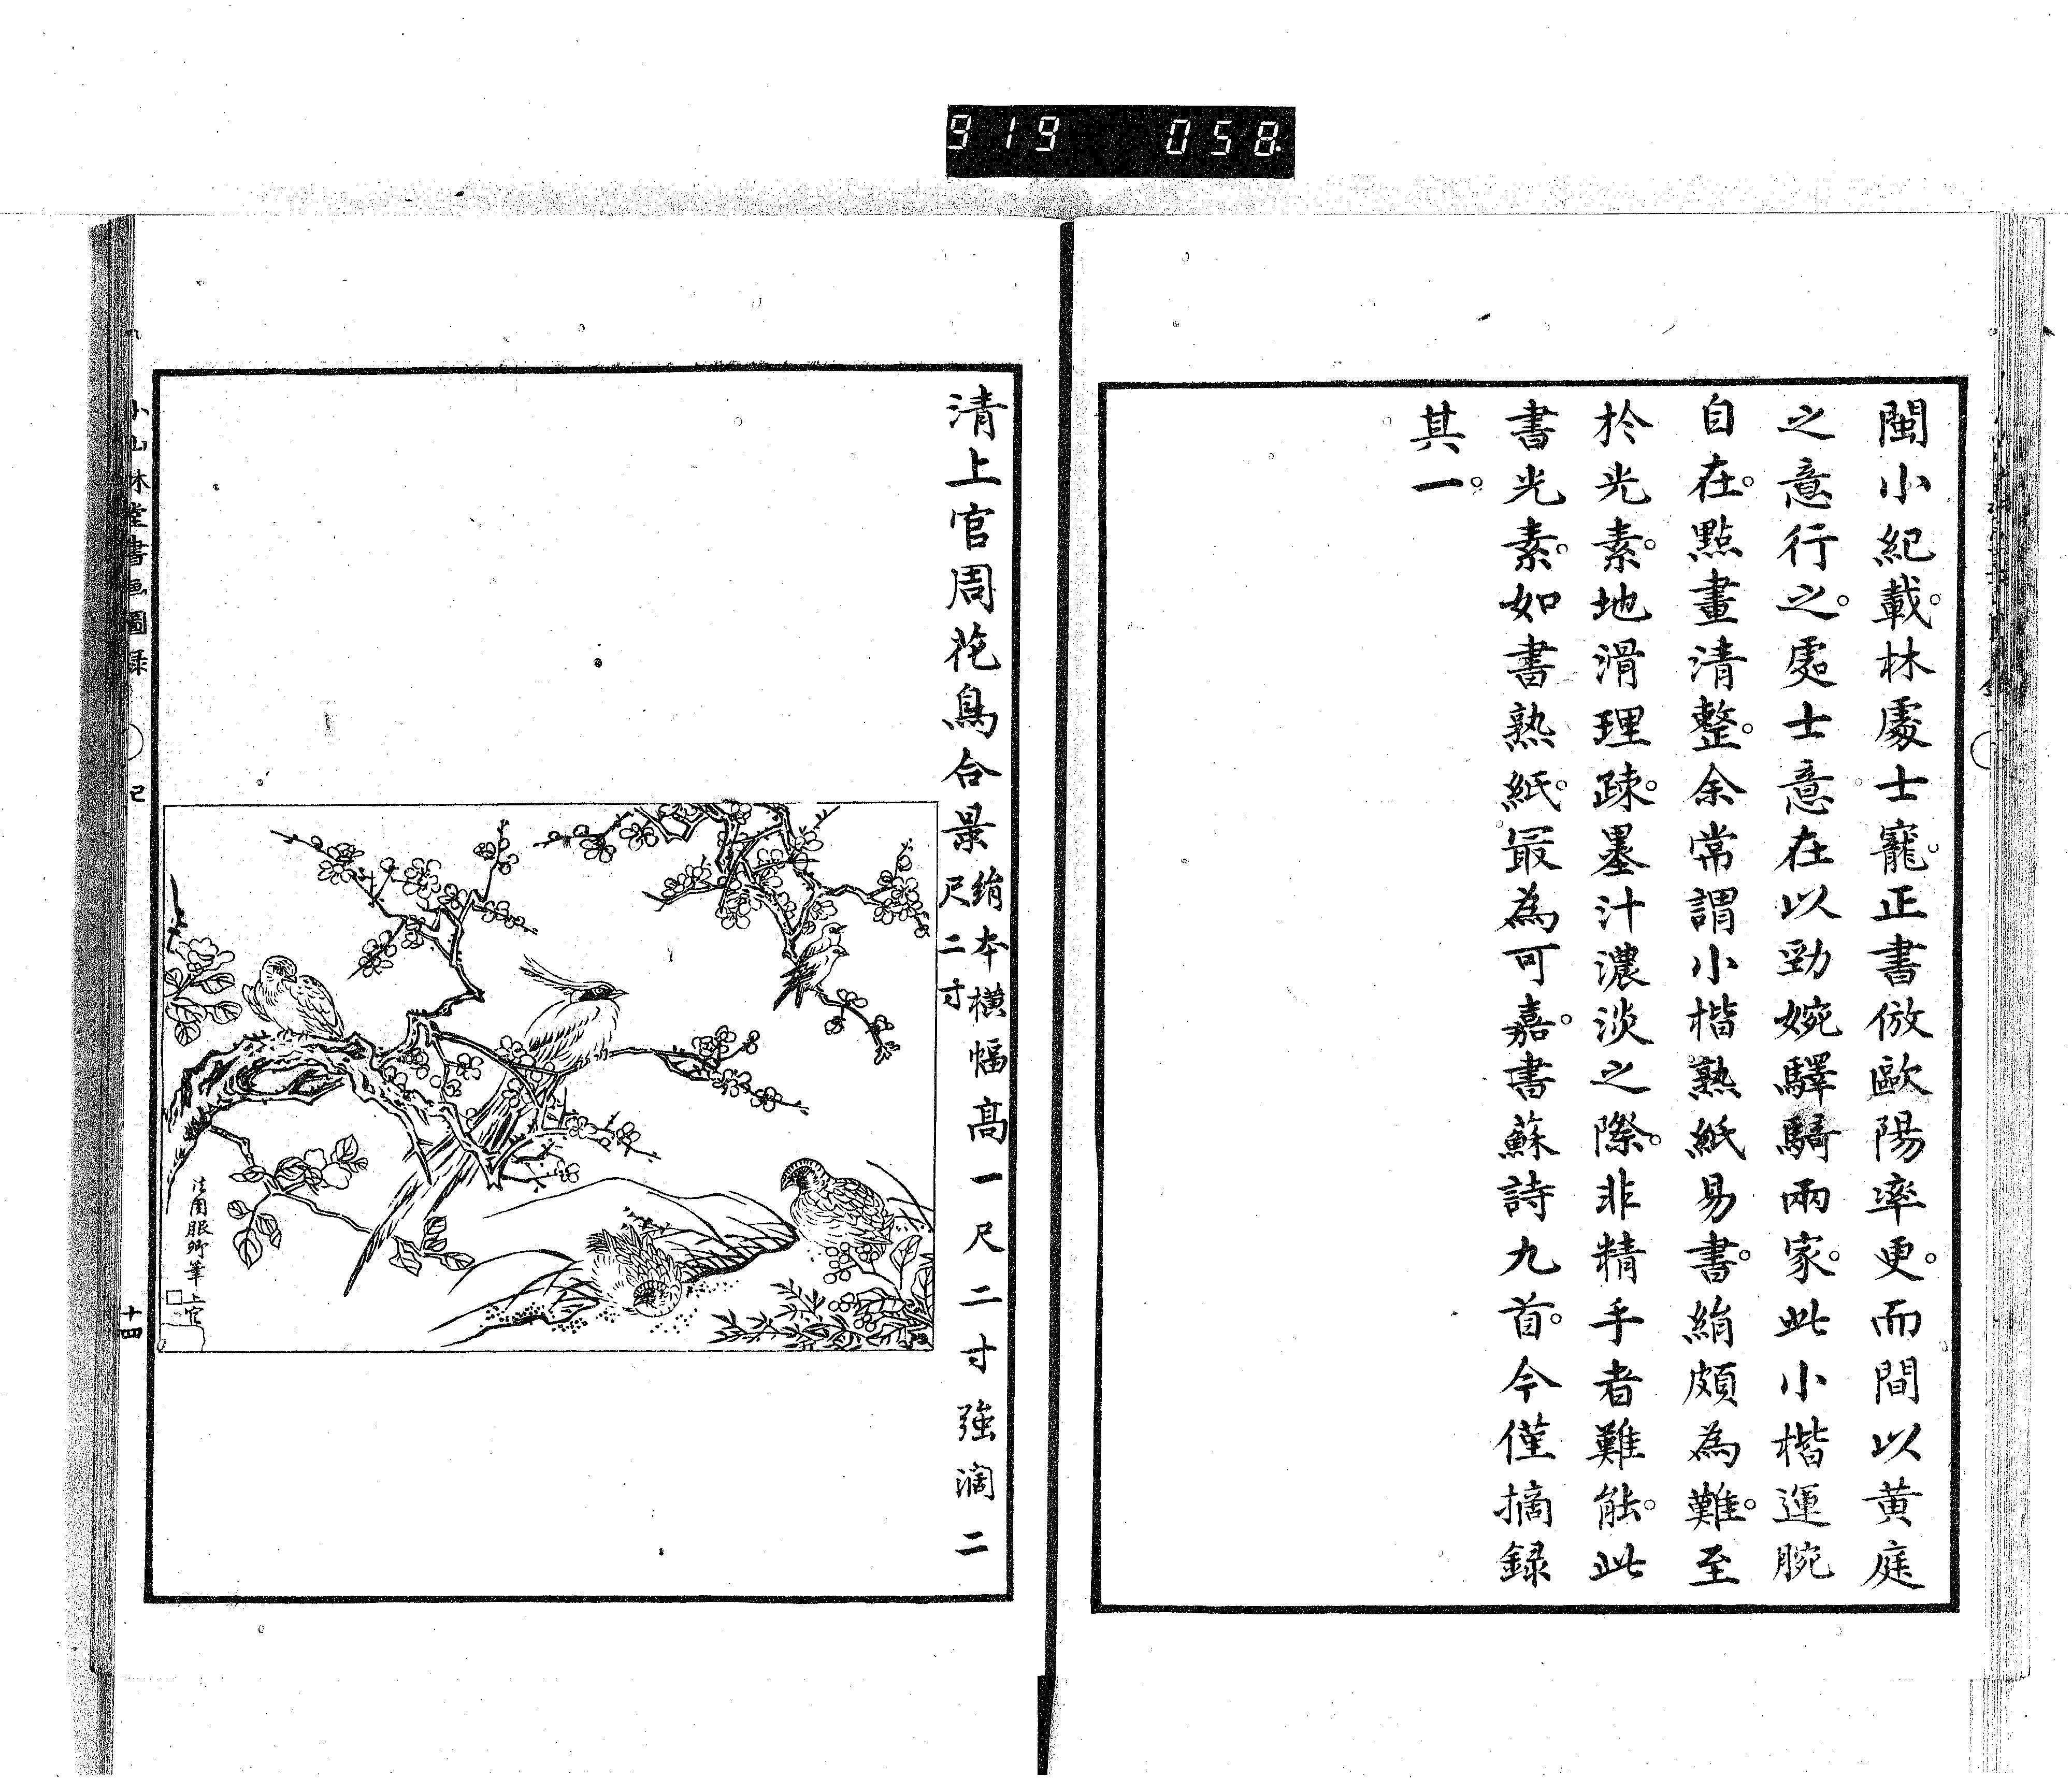 919 058
閩小紀載。林處士寵。正書倣歐陽率更。而間以黄庭
之意行之。処士意在以勁婉驛騎兩家。此小楷運腕
自在。點畫清整。余常謂小楷熟紙易書。絹頗為難。至
扵光素。地滑理疎。墨汁濃淡之際。非精手者難能。此
書光素。如書熟紙。最為可嘉。書蘇詩九首。今僅摘録
其一。
清上官周花鳥合景
絹本横幅高一尺二寸強濶二
尺二寸
法周眼卿筆
上官
小山林堂書画圖録
十四